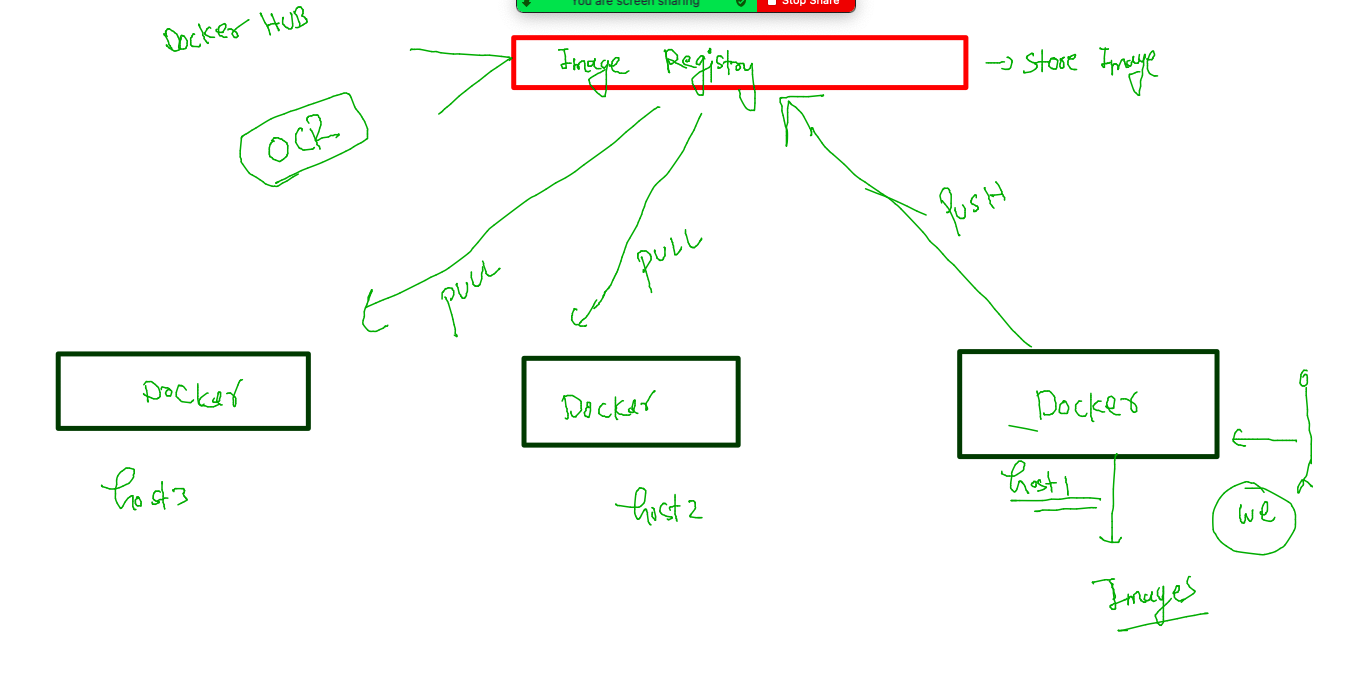 You are screen sharing
Stop Share
Docker HUB
Image Registry
→ Store Image
OCR
PUSH
PULL
PULL
Docker
Docker
Docker
host1
host3
host2
we
Images